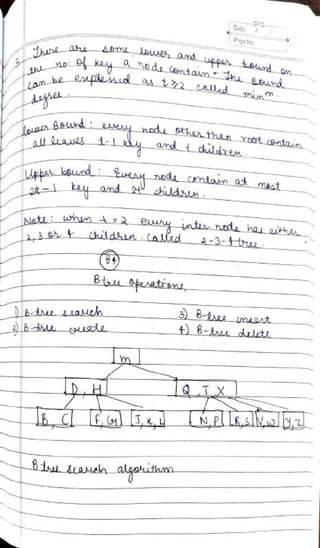 Date
Page No
5. There are some lower and upper bound on
the no. of key a node contain. The bound
can be expressed as t≥2 called minm
degree.
lower Bound: every node other than root contain
all leaves t-1 key and t children.
Upper bound: Every node contain at most
2t-1 key and 2t children.
Note: when t=2 every inter node has either
2, 3 or 4 children. Called 2-3-4 tree.
B4
B tree Operations,
1) B-tree search 3) B-tree insert
2) B-tree create 4) B-tree delete
m
D, H Q, T, X
B, C F, G J, K, L N, P R, S V, W Y, Z
B tree search algorithm